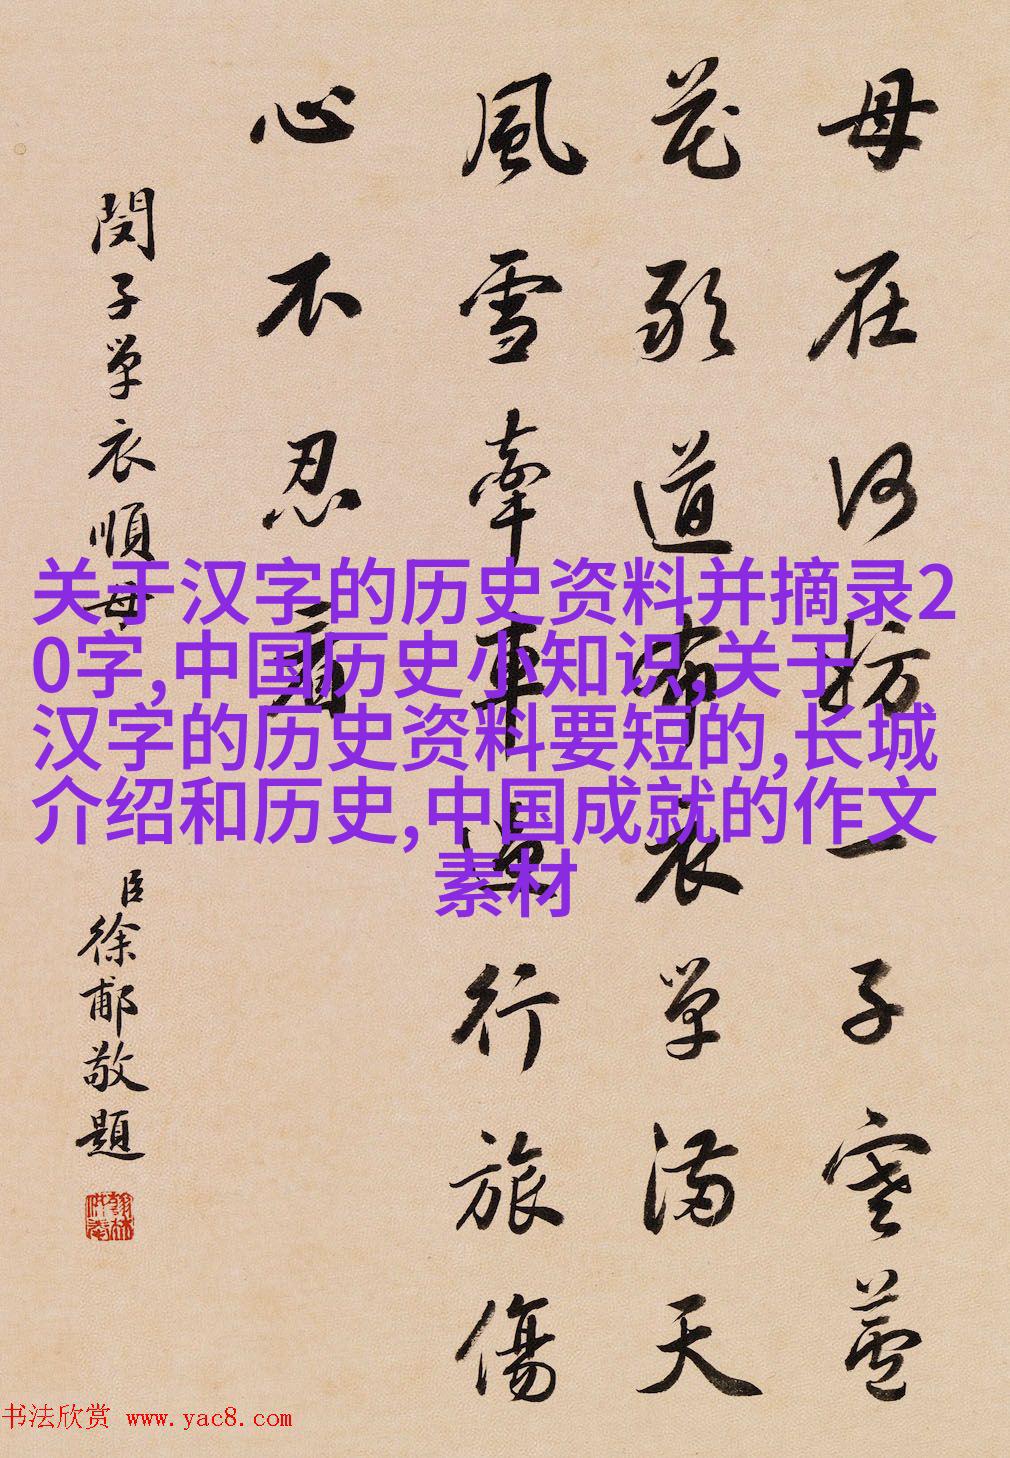 关于汉字的历史资料并摘录2
0字,中国历史小知识,关于
汉字的历史资料要短的,长城
介绍和历史,中国成就的作文
素材
母在何妨一子寒蘆
花敢道衣單滿天
風雪牽車遠行旅傷
心不忍看
閔子單衣順母
臣徐郙敬題
书法欣赏 www.yac8.com